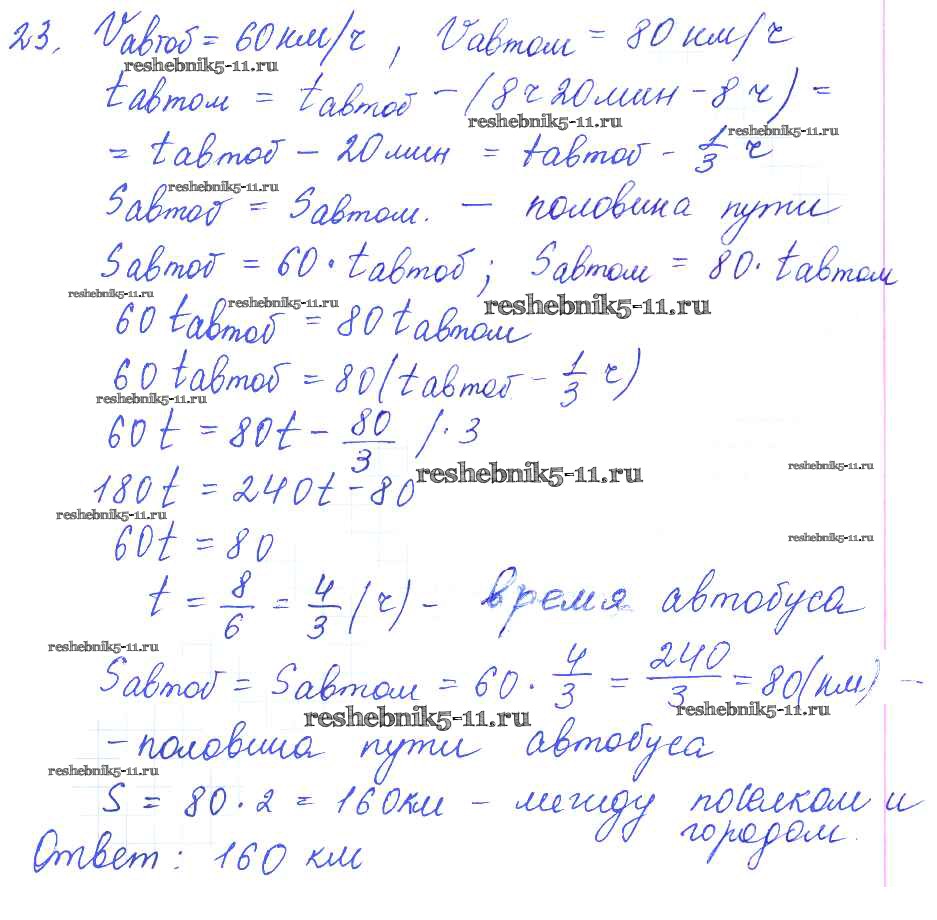 23. Vавтоб = 60 км/ч , Vавтом = 80 км/ч
reshebnik5-11.ru
tавтом = tавтоб - (8ч 20мин - 8 ч) =
reshebnik5-11.ru reshebnik5-11.ru
= tавтоб - 20 мин = tавтоб - 1/3 ч
reshebnik5-11.ru
Sавтоб = Sавтом. — половина пути
Sавтоб = 60 · tавтоб ; Sавтом = 80 · tавтом
reshebnik5-11.ru reshebnik5-11.ru reshebnik5-11.ru
60 tавтоб = 80 tавтом
60 tавтоб = 80(tавтоб - 1/3 ч)
reshebnik5-11.ru
60t = 80t - 80/3 /·3
reshebnik5-11.ru reshebnik5-11.ru
180t = 240t - 80
reshebnik5-11.ru
60t = 80
reshebnik5-11.ru
t = 8/6 = 4/3 (ч) - время автобуса
reshebnik5-11.ru
Sавтоб = Sавтом = 60 · 4/3 = 240/3 = 80(км) -
reshebnik5-11.ru reshebnik5-11.ru
- половина пути автобуса
reshebnik5-11.ru
S = 80 · 2 = 160км - между поселком и
городом.
Ответ: 160 км